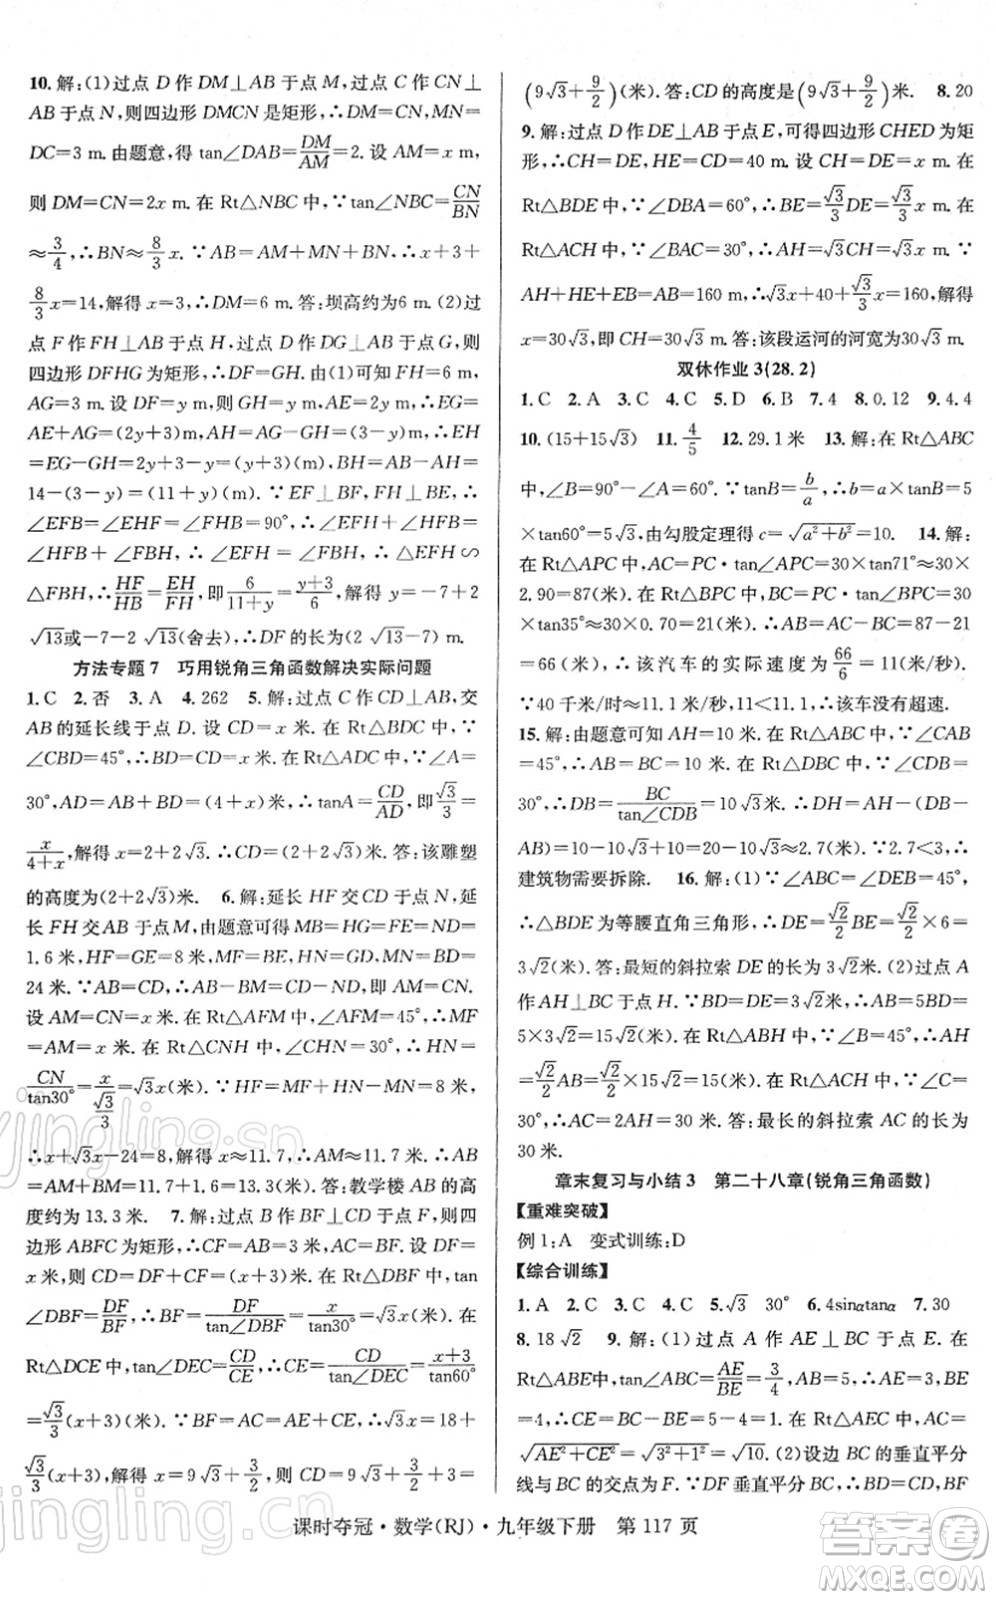 10. 解:(1)过点 D 作 DM⊥AB 于点 M,过点 C 作 CN⊥
AB 于点 N,则四边形 DMCN 是矩形,∴DM=CN,MN=
DC=3 m. 由题意,得 tan∠DAB=DM/AM=2. 设 AM=x m,
则 DM=CN=2x m. 在 Rt△NBC 中,∵tan∠NBC=CN/BN
≈3/4,∴BN≈8/3x. ∵AB=AM+MN+BN,∴x+3+
8/3x=14,解得 x=3,∴DM=6 m. 答:坝高约为 6 m. (2)过
点 F 作 FH⊥AB 于点 H,过点 D 作 DG⊥AB 于点 G,则
四边形 DFHG 为矩形,∴DF=GH. 由(1),得 DG=6 m,
AG=3 m. 设 DF=y m,则 GH=y m,AE=2y m,∴EG=
AE+AG=(2y+3)m,AH=AG+GH=(3+y)m,∴EH
=EG-GH=2y+3-y=(y+3)m,BH=AB-AH=
14-(3-y)=(11+y)(m). ∵EF⊥BF,FH⊥BE,∴
∠EFB=∠EHF=∠FHB=90°,∴∠EFH+∠HFB=
∠HFB+∠FBH,∴∠EFH=∠FBH,∴△EFH∽
△FBH,∴HF/HB=EH/FH,即6/(11+y)=(y+3)/6,解得 y=-7+2
√13或-7-2 √13(舍去),∴DF 的长为(2 √13-7) m.
方法专题 7 巧用锐角三角函数解决实际问题
1. C 2. 否 3. A 4. 262 5. 解:过点 C 作 CD⊥AB,交
AB 的延长线于点 D. 设 CD=x 米. 在 Rt△BDC 中,∵
∠CBD=45°,∴BD=CD=x 米. 在 Rt△ADC 中,∵∠A=
30°,AD=AB+BD=(4+x)米,∴tanA=CD/AD,即√3/3=
x/(4+x),解得 x=2+2√3,∴CD=(2+2√3)米. 答:该雕塑
的高度为(2+2√3)米. 6. 解:延长 HF 交 CD 于点 N,延
长 FH 交 AB 于点 M. 由题意可得 MB=HG=FE=ND=
1.6 米,HF=GE=8 米,MF=BE,HN=GD,MN=BD=
24 米. ∵AB=CD,∴AB-BM=CD-DN,即 AM=CN.
设 AM=CN=x 米. 在 Rt△AFM 中,∠AFM=45°,∴MF
=AM=x 米. 在 Rt△CNH 中,∠CHN=30°,∴HN=
CN/tan30°=x/(√3/3)=√3x(米). ∵HF=MF+HN-MN=8 米,
∴x+√3x-24=8,解得 x≈11.7,∴AM≈11.7 米. ∴
AB=AM+MB≈11.7+1.6≈13.3(米). 答:教学楼 AB 的高
度约为 13.3 米. 7. 解:过点 B 作 BF⊥CD 于点 F,则四
边形 ABFC 为矩形,∴FC=AB=3 米,BF=AC. 设 DF=
x 米,则 CD=DF+CF=(x+3)米. 在 Rt△DBF 中,tan
∠DBF=DF/BF,∴BF=DF/tan∠DBF=x/tan30°=√3x(米). 在
Rt△DCE 中,tan∠DEC=CD/CE,∴CE=CD/tan∠DEC=(x+3)/tan60°
=√3/3(x+3)(米). ∵BF=AC=AE+CE,∴√3x=18+
√3/3(x+3),解得 x=9√3+3/2,则 CD=9√3+3/2+3=
(9√3+9/2)(米). 答:CD 的高度是(9√3+9/2)米. 8. 20
9. 解:过点 D 作 DE⊥AB 于点 E,可得四边形 CHED 为矩
形,∴CH=DE,HE=CD=40 m. 设 CH=DE=x m. 在
Rt△BDE 中,∵∠DBA=60°,∴BE=√3/3DE=√3/3x m. 在
Rt△ACH 中,∵∠BAC=30°,∴AH=√3CH=√3x m. ∵
AH+HE+EB=AB=160 m,∴√3x+40+√3/3x=160,解得
x=30√3,即 CH=30√3 m. 答:该段运河的河宽为 30√3 m.
双休作业 3(28.2)
1. C 2. A 3. C 4. C 5. D 6. B 7. 4 8. 0.12 9. 4.4
10. (15+15√3) 11. 4/5 12. 29.1 米 13. 解:在 Rt△ABC
中,∠B=90°-∠A=60°. ∵tanB=b/a,∴b=a×tanB=5
×tan60°=5√3,由勾股定理得 c=√(a²+b²)=10. 14. 解:
在 Rt△APC 中,AC=PC·tan∠APC=30×tan71°≈30×
2.90=87(米). 在 Rt△BPC 中,BC=PC·tan∠BPC=30
×tan35°≈30×0.70=21(米),∴AB=AC-BC=87-21
=66(米),∴该汽车的实际速度为66/6=11(米/秒).
∵40 千米/时≈11.1 米/秒,且 11<11.1,∴该车没有超速.
15. 解:由题意可知 AH=10 米. 在 Rt△ABC 中,∵∠CAB
=45°,∴AB=BC=10 米. 在 Rt△DBC 中,∵∠CDB=
30°,∴DB=BC/tan∠CDB=10√3(米). ∴DH=AH-(DB-
AB)=10-10√3+10=20-10√3≈2.7(米). ∵2.7<3,∴
建筑物需要拆除. 16. 解:(1)∵∠ABC=∠DEB=45°,
∴△BDE 为等腰直角三角形,∴DE=√2/2BE=√2/2×6=
3√2(米). 答:最短的斜拉索 DE 的长为 3√2米. (2)过点 A
作 AH⊥BC 于点 H. 由(1)知 BD=DE=3√2米,∴AB=5BD=
5×3√2=15√2(米). 在 Rt△ABH 中,∵∠B=45°,∴AH
=√2/2AB=√2/2×15√2=15(米). 在 Rt△ACH 中,∵∠C=
30°,∴AC=2AH=30 米. 答:最长的斜拉索 AC 的长为
30 米.
章末复习与小结 3 第二十八章(锐角三角函数)
【重难突破】
例 1:A 变式训练:D
【综合训练】
1. A 2. C 3. C 4. C 5. √3 30° 6. 4sinαtanα 7. 30
8. 18√2 9. 解:(1)过点 A 作 AE⊥BC 于点 E. 在
Rt△ABE 中,tan∠ABC=AE/BE=3/4,AB=5,∴AE=3,BE
=4,∴CE=BC-BE=5-4=1. 在 Rt△AEC 中,AC=
√(AE²+CE²)=√(3²+1²)=√10. (2)设边 BC 的垂直平分
线与 BC 的交点为 F. ∵DF 垂直平分 BC,∴BD=CD,BF
课时夺冠·数学(RJ)·九年级下册 第 117 页
yjingling.cn
yjingling.cn
作业帮
MXQE.COM